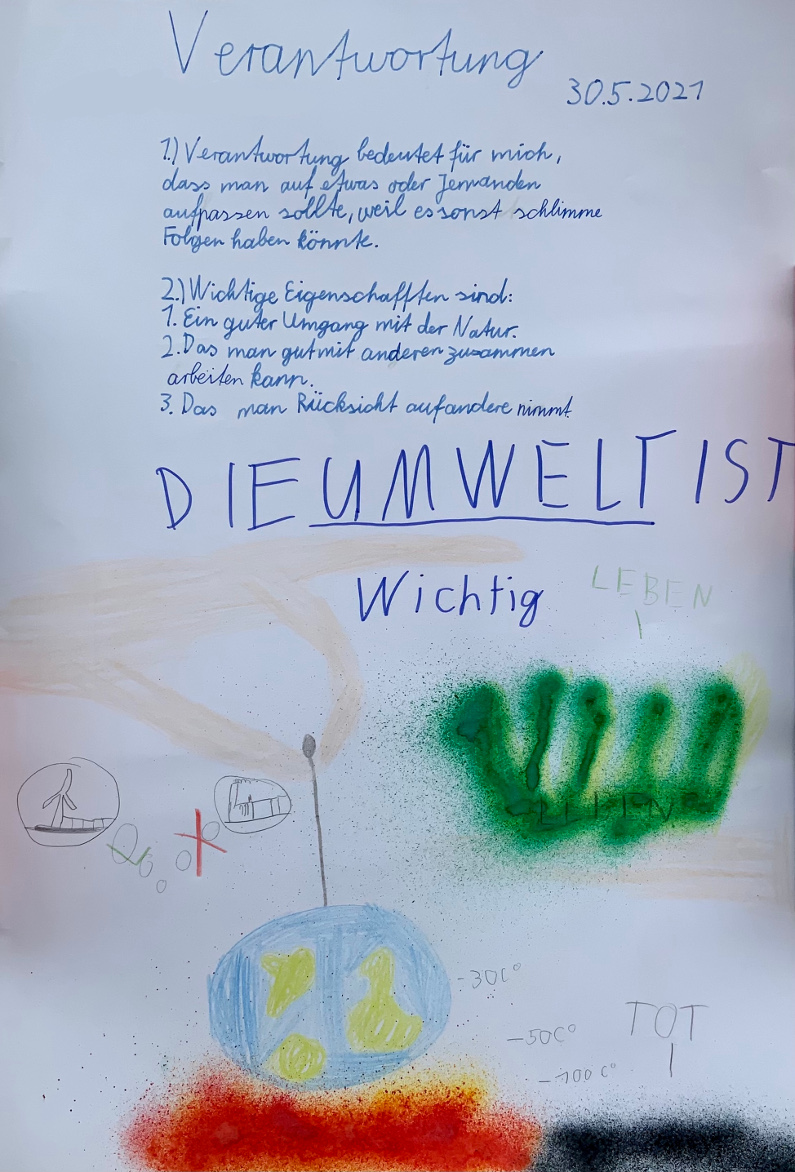 Verantwortung
30.5.2021
1.) Verantwortung bedeutet für mich,
dass man auf etwas oder Jemanden
aufpassen sollte, weil es sonst schlimme
Folgen haben könnte.
2.) Wichtige Eigenschafften sind:
1. Ein guter Umgang mit der Natur.
2. Das man gut mit anderen zusammen
arbeiten kann.
3. Das man Rücksicht auf andere nimmt
DIE UMWELT IST
Wichtig
LEBEN
LEBEN
-30C°
-50C°
-100C°
TOT